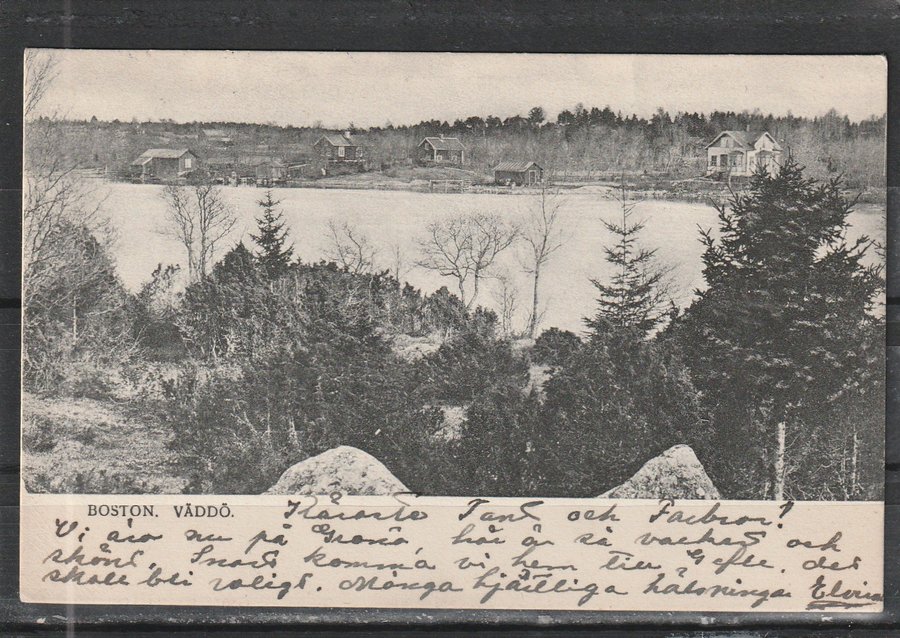 BOSTON. VÄDDÖ.
Käraste Tant och Farbror!
Vi äro nu på Grönö, här är så vackert och
skönt. Snart komma vi hem till Gefle, det
skall bli roligt. Många hjärtliga hälsningar Elvira